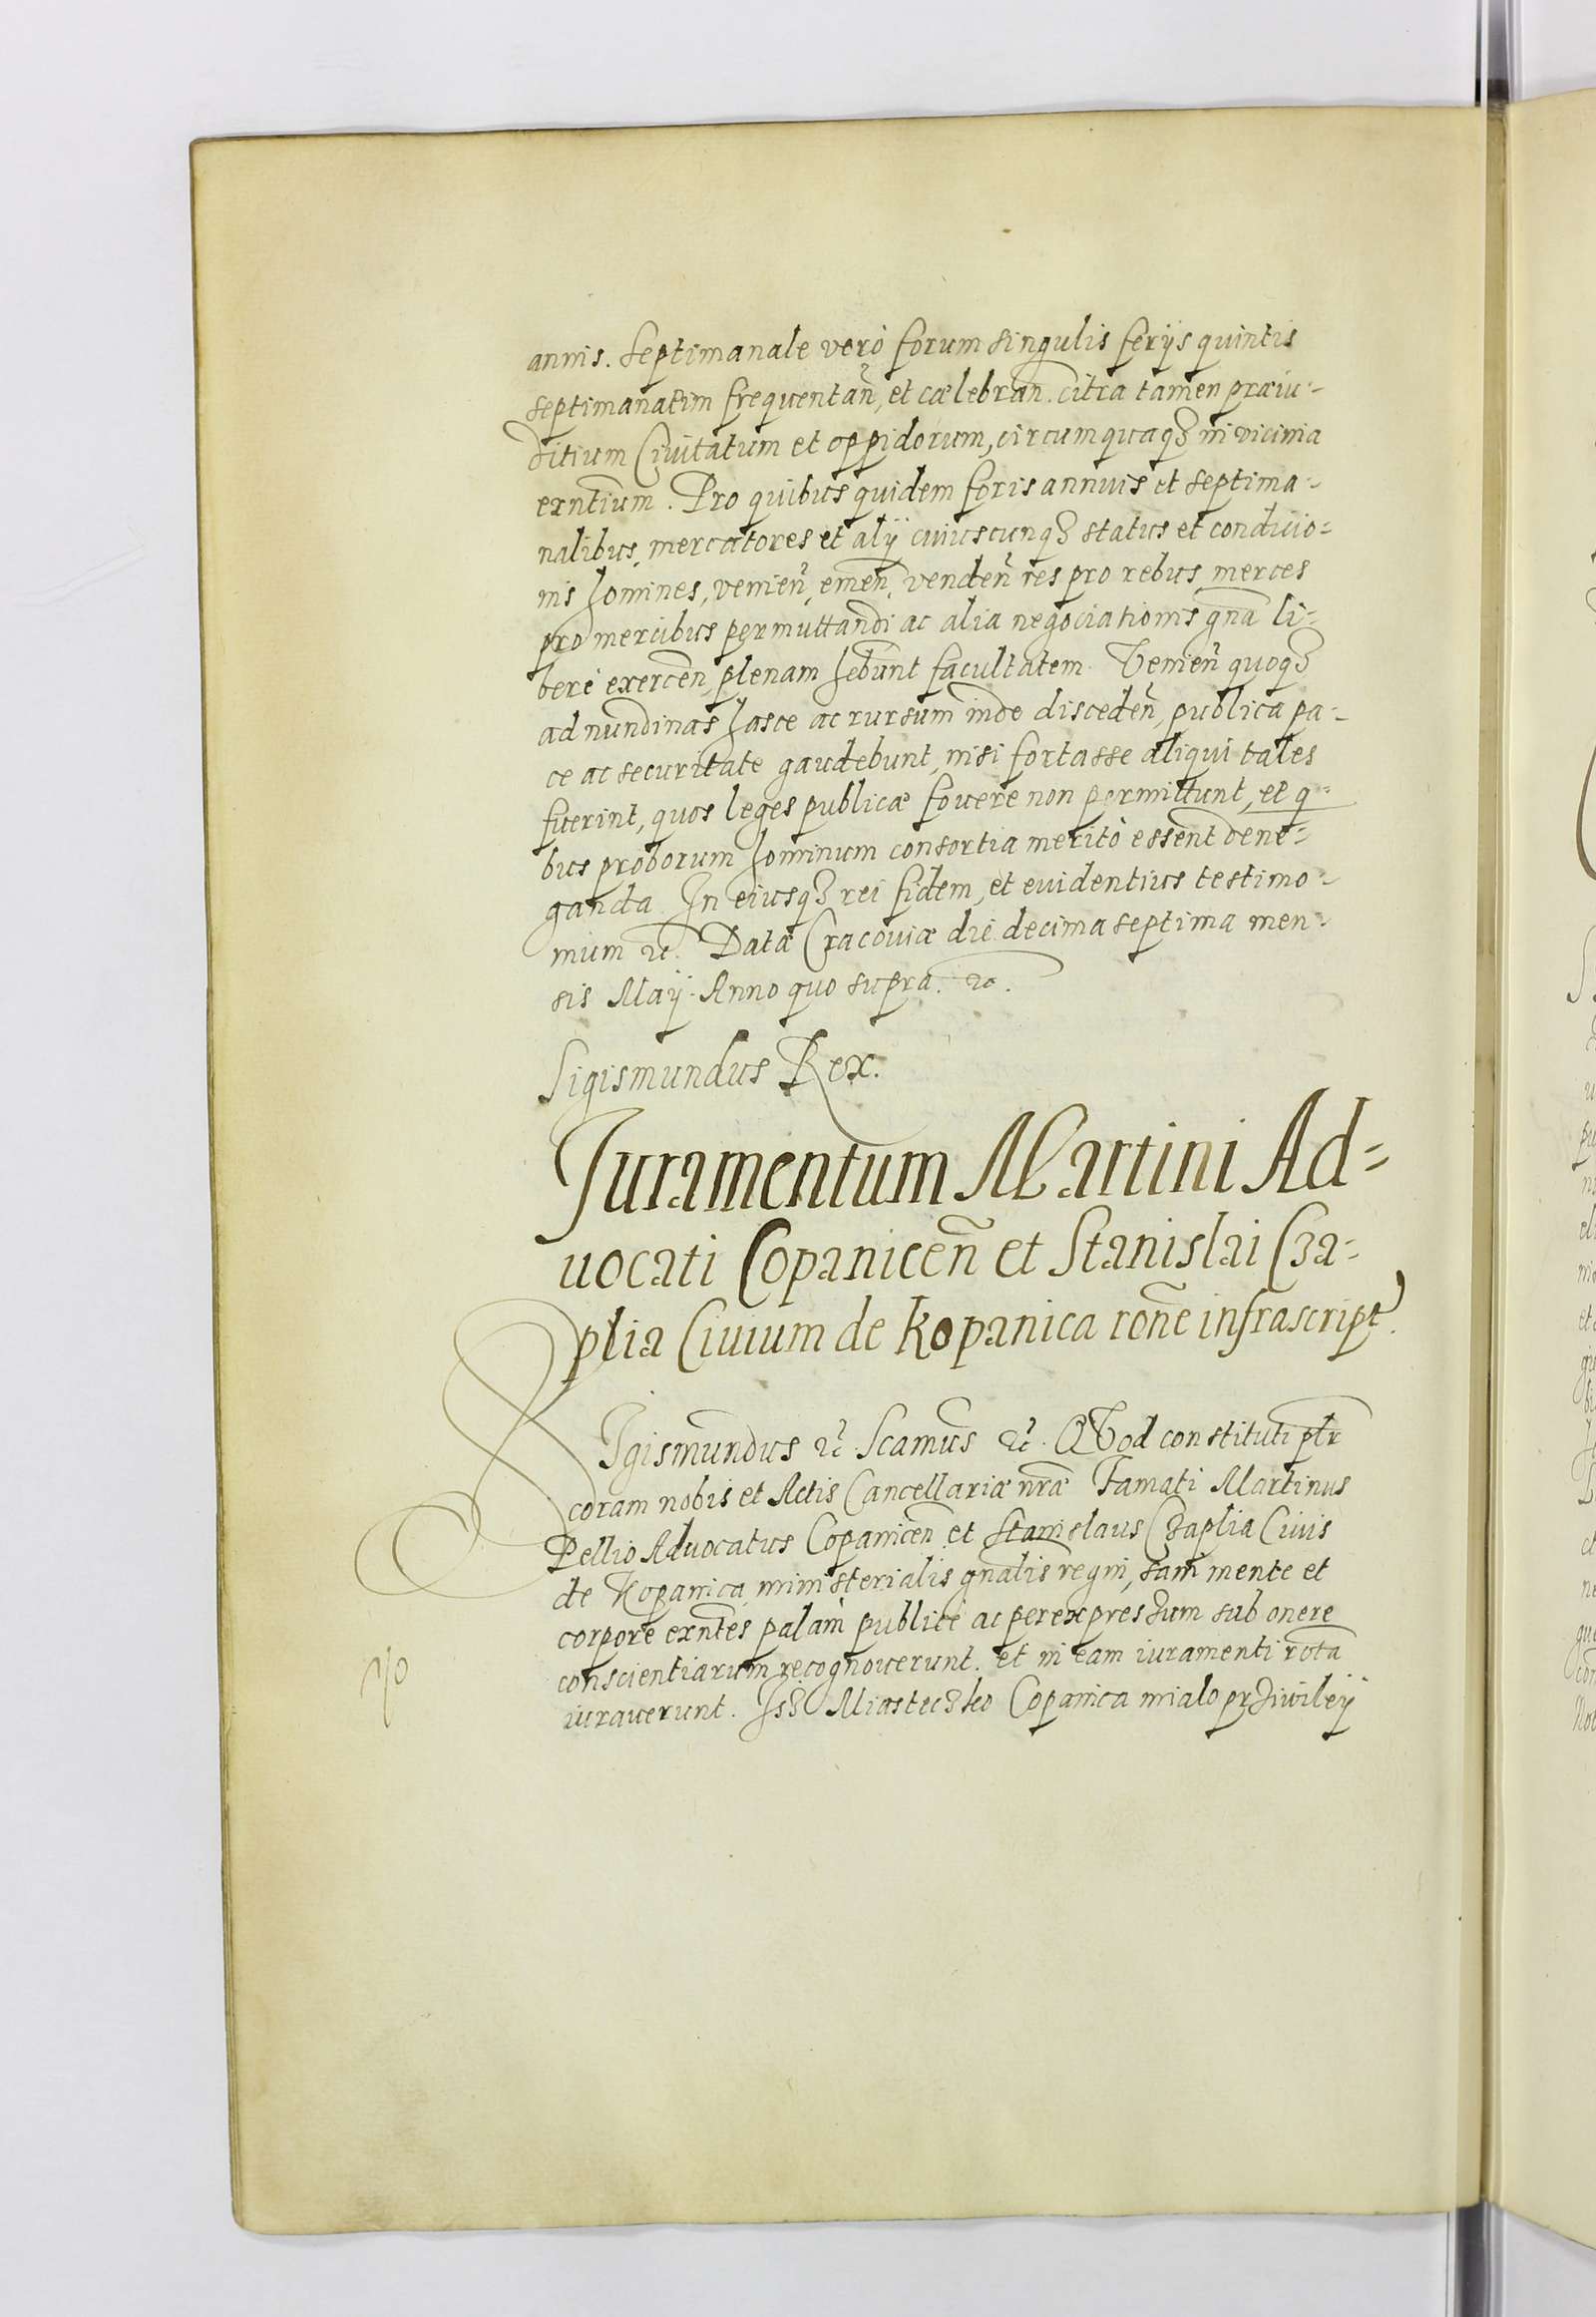 annis. Septimanale verò forum singulis ferijs quintis
septimanatim frequentañ, et cælebrañ. citra tamen præiu-
ditium Ciuitatum et oppidorum, circumquaqꝫ in vicinia
exñtium. Pro quibus quidem foris annuis et septima-
nalibus, mercatores et alij cuiuscunqꝫ status et condicio-
nis homines, venień, emeñ, vendeñ res pro rebus, merces
pro mercibus permuttandi ac alia negociationis gña li-
berè exerceñ, plenam hebunt facultatem. Venień quoqꝫ
ad nundinas hasce ac rursum inde discedeñ, publica pa-
ce ac securitate gaudebunt, nisi fortasse aliqui tales
fuerint, quos leges publicæ fouere non permittunt, et q-
bus proborum hominum consortia meritò essent dene-
ganda. In eiusqꝫ rei fidem, et euidentius testimo-
nium ꝛc. Datæ Cracouiæ die decima septima men-
sis Maij. Anno quo supra. ꝛc.
Sigismundus Rex.
Juramentum Martini Ad-
uocati Copaniceñ et Stanislai Cza-
plia Ciuium de Kopanica roñe infrascript.
SIgismundus ꝛc. Scamus ꝛc. QVod constituti pltr
coram nobis et Actis Cancellariæ nrae Famati Martinus
Pellio Aduocatus Copaniceñ et Stanislaus Czaplia Ciuis
de Kopanica, ministerialis gnalis regni, sani mente et
corpore exñtes palàm publicè ac per expressum sub onere
conscientiarum recognouerunt. et in eam iuramenti rota
iurauerunt. Isz Miasteczko Copanica mialo przivileij